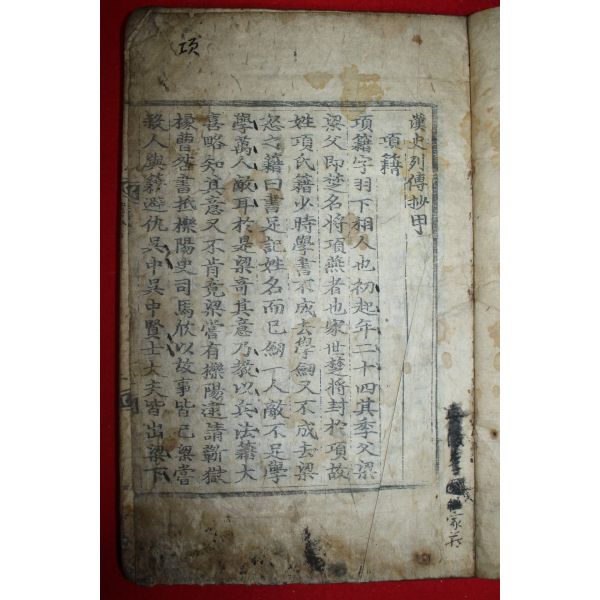 項
漢史列傳抄甲
項籍
項籍字羽下相人也初起年二十四其季父梁
梁父即楚名將項燕者也家世楚將封於項故
姓項氏籍少時學書不成去學劒又不成去梁
怒之籍曰書足記姓名而已劒一人敵不足學
學萬人敵耳於是梁奇其意乃敎以兵法籍大
喜略知其意又不肯竟梁嘗有櫟陽逮請蘄獄
掾曹咎書抵櫟陽史司馬欣以故事皆已梁嘗
殺人與籍避仇吳中吳中賢士大夫皆出梁下
家藏